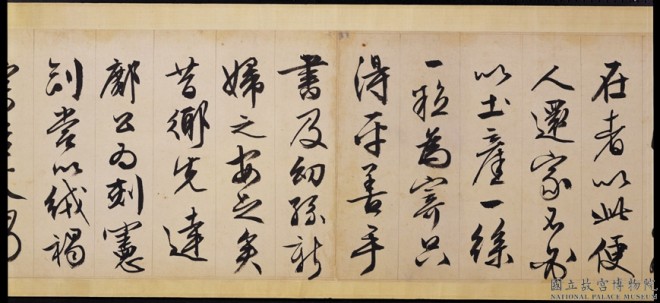 在者以此便
人還家不及
以土產一緣
一粒為寄只
得平善手
書及幼孫新
婦之安足矣
昔鄉先達
鄺公為刻憲
嘗以絨褐
國立故宮博物院
NATIONAL PALACE MUSEUM